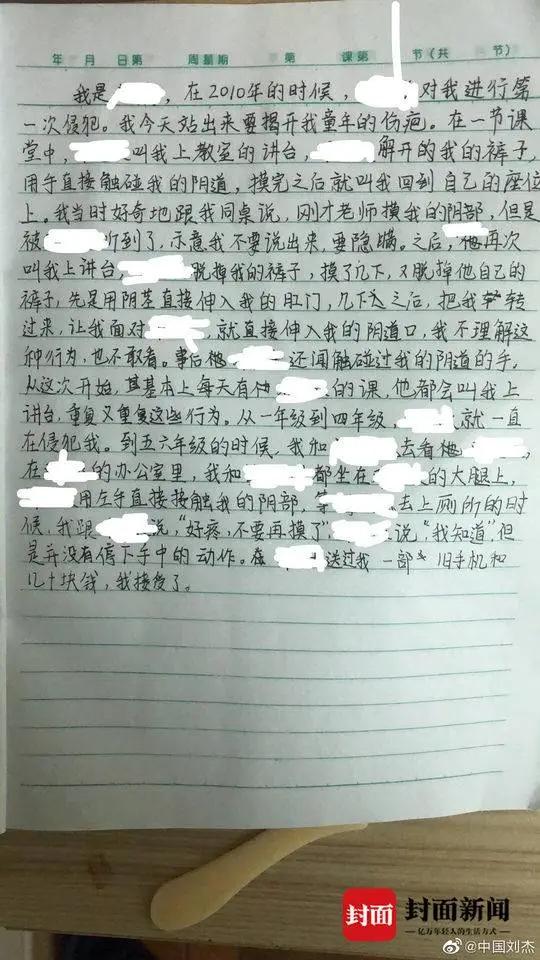 年 月 日第 周星期 第 课第 节(共 节)
我是 ,在2010年的时候, 对我进行第
一次侵犯。我今天站出来要揭开我童年的伤疤。在一节课
堂中, 叫我上教室的讲台, 解开的我的裤子,
用手直接触碰我的阴道,摸完之后就叫我回到自己的座位
上。我当时好奇地跟我同桌说,刚才老师摸我的阴部,但是
被 听到了,示意我不要说出来,要隐瞒。之后,他再次
叫我上讲台, 脱掉我的裤子,摸了几下,又脱掉他自己的
裤子,先是用阴茎直接伸入我的肛门,几下之后,把我转
过来,让我面对 ,就直接伸入我的阴道口,我不理解这
种行为,也不敢看。事后他 还闻触碰过我的阴道的手。
从这次开始,其基本上每天有他 的课,他都会叫我上
讲台,重复又重复这些行为。从一年级到四年级, 就一直
在侵犯我。到五六年级的时候,我和 去看他 ,
在 的办公室里,我和 都坐在 的大腿上,
用左手直接接触我的阴部,等 去上厕所的时
候,我跟 说,“好疼,不要再摸了”, 说“我知道”但
是并没有停下手中的动作。 送过我一部 旧手机和
几十块钱,我接受了。
封面 封面新闻
亿万年轻人的生活方式
@中国刘杰